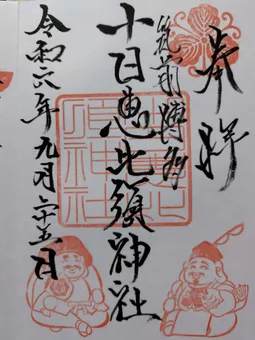 奉拝
筑前博多
十日恵比須神社
令和六年九月二十五日